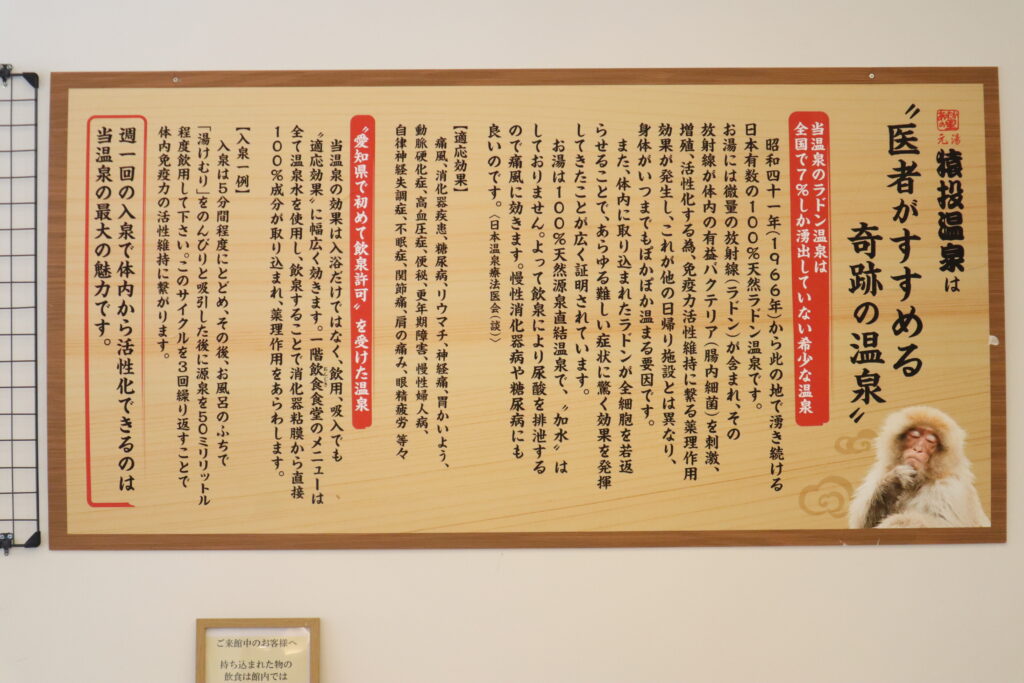 元湯 猿投温泉は
〝医者がすすめる
奇跡の温泉〟
当温泉のラドン温泉は
全国で7％しか湧出していない希少な温泉
昭和四十一年(1966年)から此の地で湧き続ける
日本有数の100％天然ラドン温泉です。
お湯には微量の放射線(ラドン)が含まれ、その
放射線が体内の有益バクテリア(腸内細菌)を刺激、
増殖、活性化する為、免疫力活性維持に繋る薬理作用
効果が発生し、これが他の日帰り施設とは異なり、
身体がいつまでもぽかぽか温まる要因です。
また、体内に取り込まれたラドンが全細胞を若返
らせることで、あらゆる難しい症状に驚く効果を発揮
してきたことが広く証明されています。
お湯は100％天然源泉直結温泉で、〝加水〟は
しておりません。よって飲泉により尿酸を排泄する
ので痛風に効きます。慢性消化器病や糖尿病にも
良いのです。(日本温泉療法医会(談))
【適応効果】
痛風、消化器疾患、糖尿病、リウマチ、神経痛、胃かいよう、
動脈硬化症、高血圧症、便秘、更年期障害、慢性婦人病、
自律神経失調症、不眠症、関節痛、肩の痛み、眼精疲労 等々
〝愛知県で初めて飲泉許可〟を受けた温泉
当温泉の効果は入浴だけではなく、飲用、吸入でも
〝適応効果〟に幅広く効きます。一階飲食食堂のメニューは
全て温泉水を使用し、飲泉することで消化器粘膜から直接
100％成分が取り込まれ、薬理作用をあらわします。
【入泉一例】
入泉は5分間程度にとどめ、その後、お風呂のふちで
「湯けむり」をのんびりと吸引した後に源泉を50ミリリットル
程度飲用して下さい。このサイクルを3回繰り返すことで
体内免疫力の活性維持に繋がります。
週一回の入泉で体内から活性化できるのは
当温泉の最大の魅力です。
ご来館中のお客様へ
持ち込まれた物の
飲食は館内では